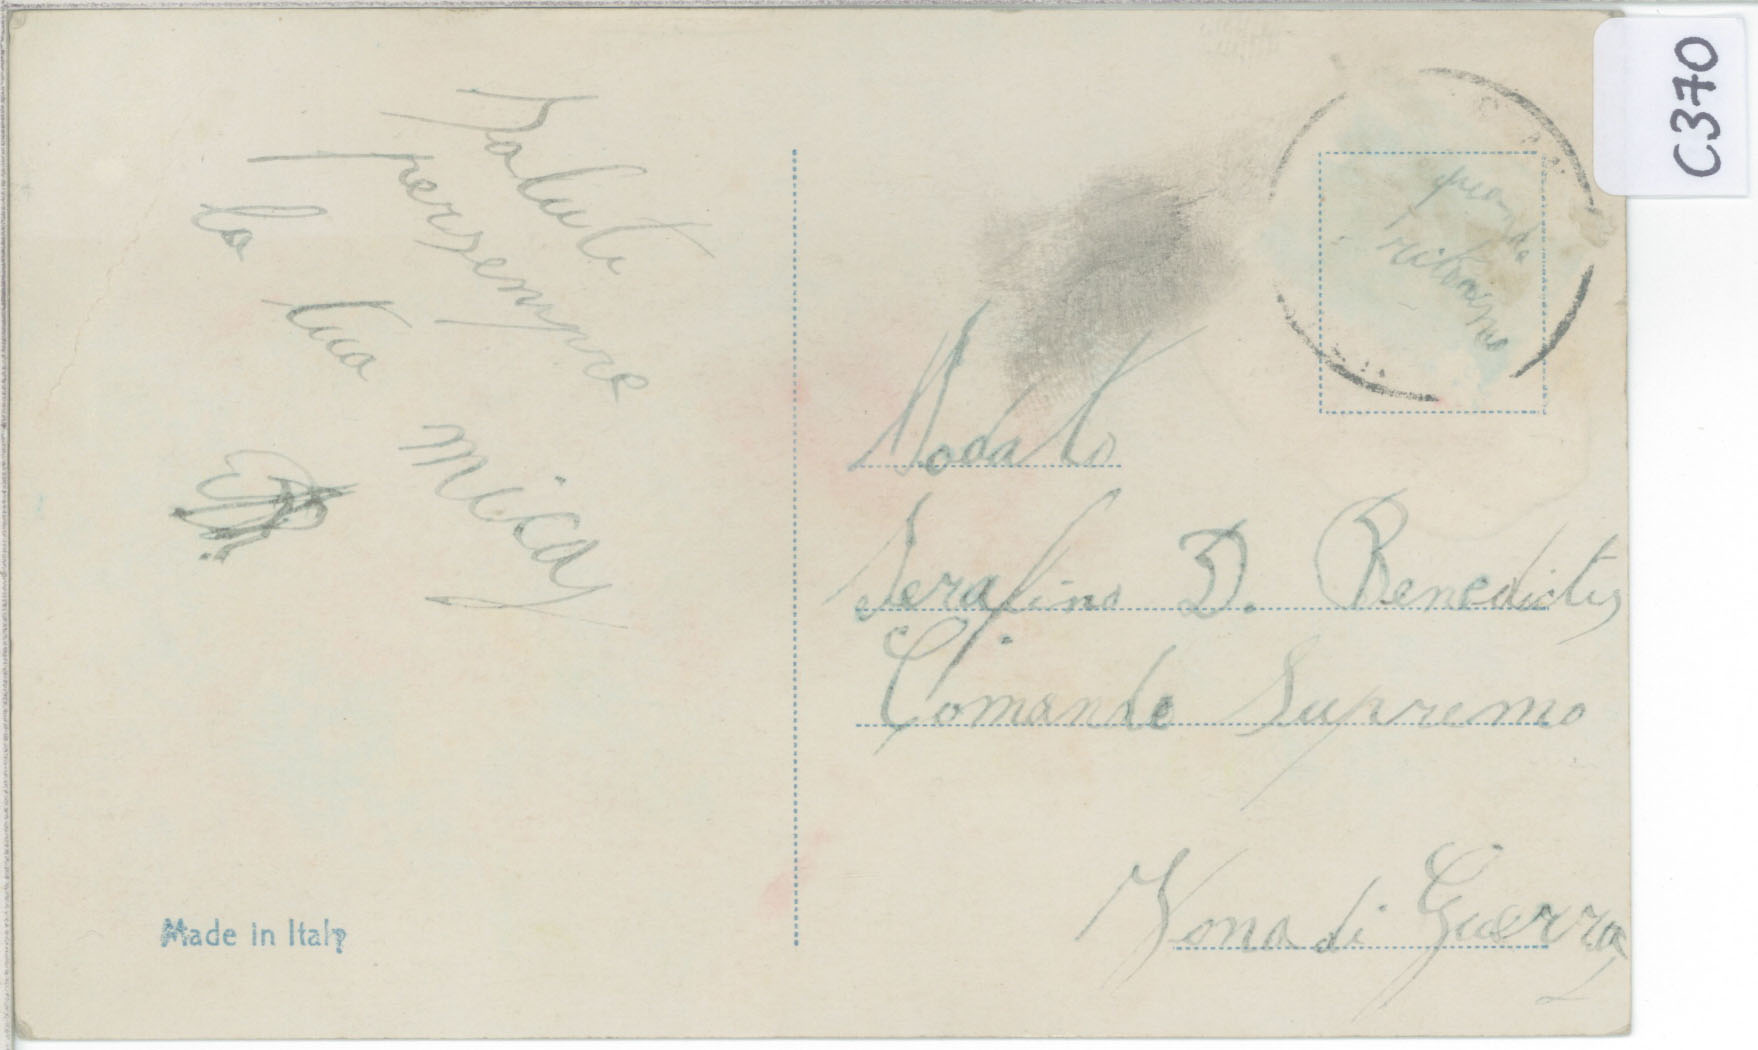 Saluti
persempre
la tua
mica
quando
ritorniamo
Serafino D. Benedictis
Comando Supremo
Zona di Guerra
Made in Italy
C370